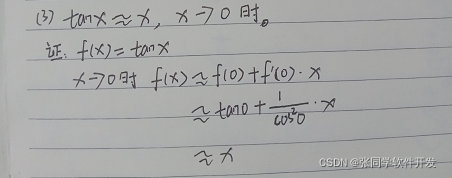 (3) tanx≈x, x→0时。
证: f(x)=tanx
x→0时 f(x)≈f(0)+f'(0)·x
≈tan0+\frac{1}{cos²0}·x
≈x
CSDN @张同学软件开发